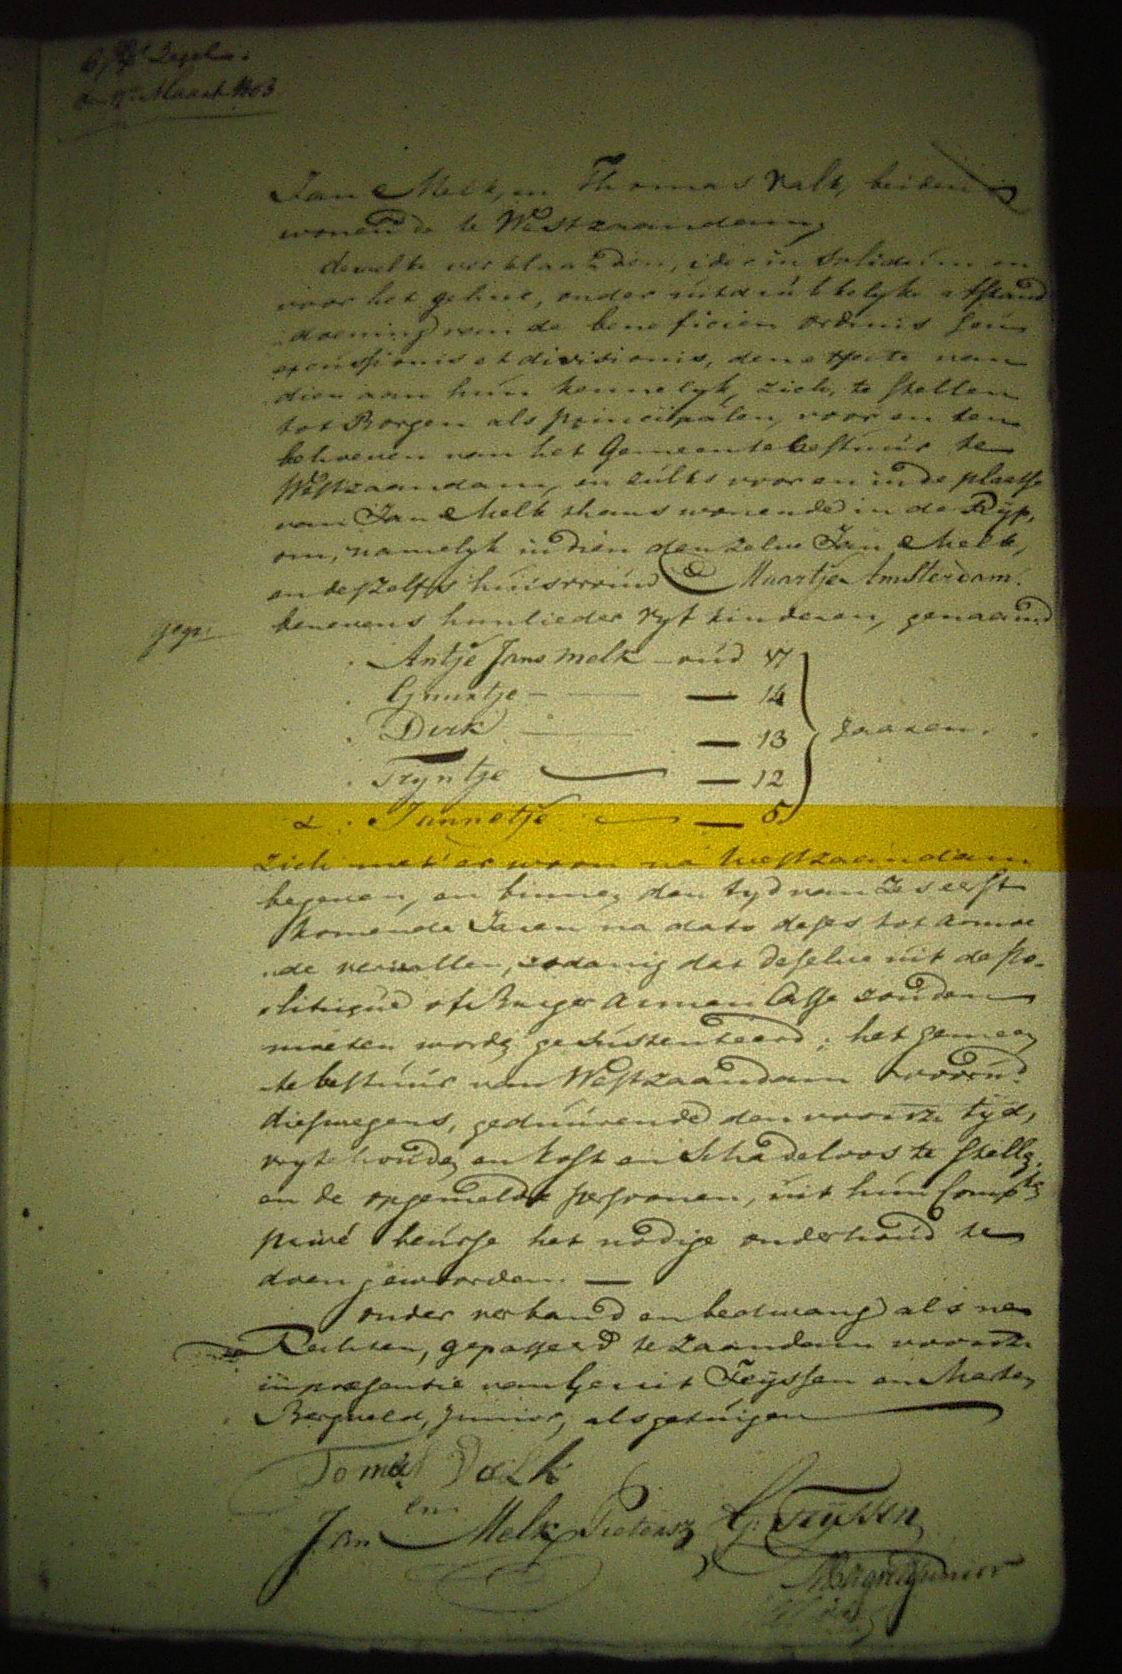 6 st Zegel.
den 12 Maart 1803
Jan Melk, en Thomas Valk, beiden
wonende te Westzaandam,
dewelke verklaarden, ider in Solidum en
voor het geheel, onder uitdrukkelyke afstand
doening van de beneficien ordinis seu
excussionis et divisionis, den effecte van
dien aan hun kennelyk, zich, te stellen
tot Borgen als principalen, voor en ten
behoeven van het Gemeentebestuur te
Westzaandam, en zulks voor en in de plaatse
van Jan Melk thans wonende in de Ryp,
om, namelyk indien denzelve Jan Melk,
en deszelfs huisvrouw Maartje Amsterdam.
gepr: benevens hunlieder vyf kinderen, genaamd
Antje Jans Melk oud 17
Grietje — 14
Dirk — 13 Jaaren.
Tryntje — 12
& Jannetje — 5
zich met'er woon na Westzaandam
begeven, en binnen den tyd van Zes eerst
komende Jaren na dato deses tot armoe
de vervallen, zodanig dat deselve uit de Po-
litique of Burger Armen Casse zouden
moeten wordn gesustenteerd; het gemeen
te bestuur van Westzaandam voornd.
dieswegens, geduurende den voorsz. tyd,
vryte houden, en kost en schadeloos te stelln,
en de opgemelde persoonen, uit hun Comptn
privé beurse het nodige onderhoud te
doen geworden. —
onder verband en bedwang als na
Rechten, gepasseerd te Zaandam voorsz.
in presentie van Gerrit Feyssen en Marten
Bergveld, Junior, als getuigen
Tomas Valk
Jan Melk Pietersz G: Feyssen